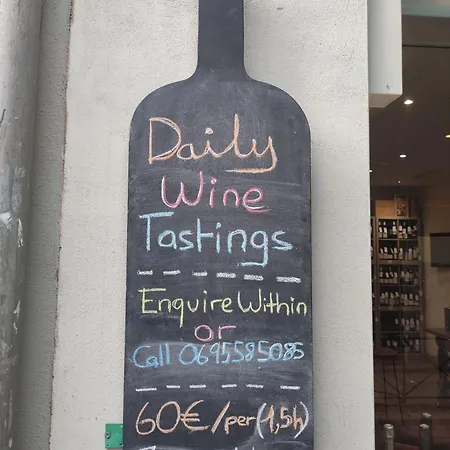 Daily
Wine
Tastings
Enquire Within
or
Call 0695585085
60€/per(1,5h)